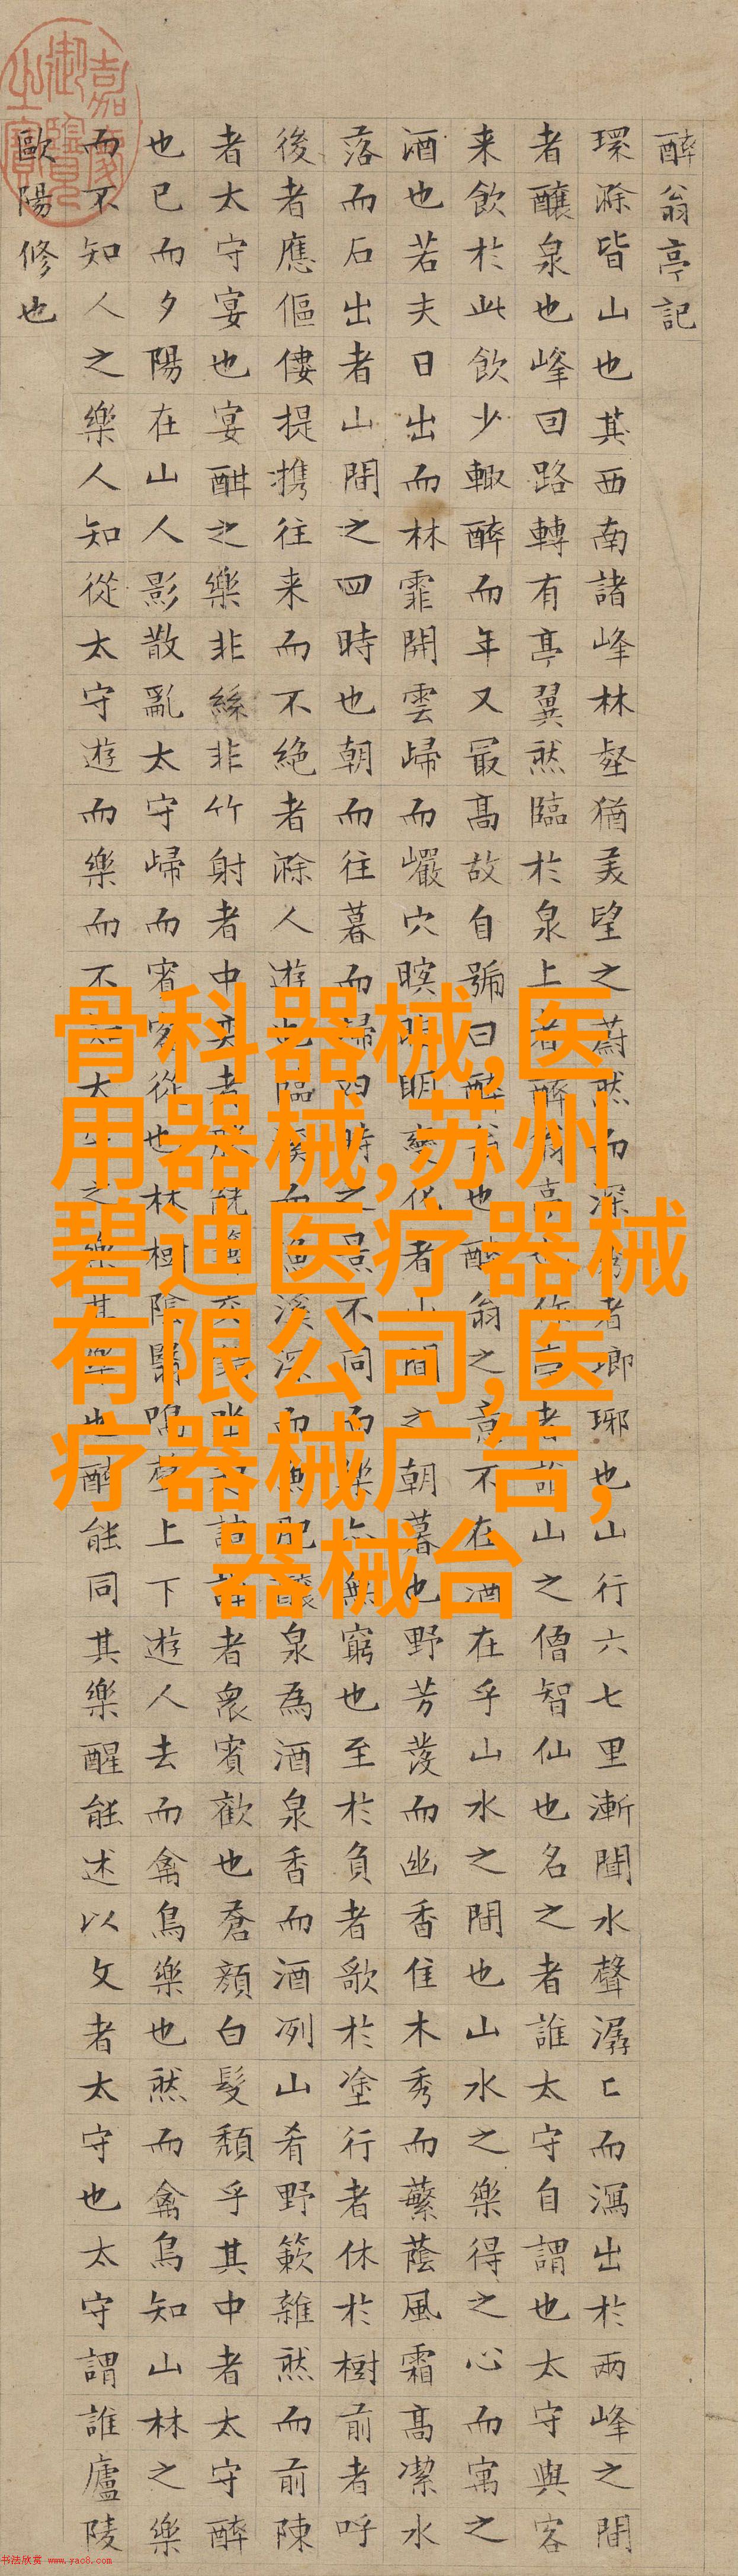 嘉慶御覽之寶
醉翁亭記
環滁皆山也其西南諸峰林壑猶美望之蔚然而深秀者瑯琊也山行六七里漸聞水聲潺〻而瀉出於兩峰之間
者釀泉也峰回路轉有亭翼然臨於泉上者醉翁亭也作亭者誰山之僧智仙也名之者誰太守自謂也太守與客
来飲於此飲少輒醉而年又最高故自號曰醉翁也醉翁之意不在酒在乎山水之間也山水之樂得之心而寓之
酒也若夫日出而林霏開雲歸而巖穴暝晦明變化者山間之朝暮也野芳發而幽香佳木秀而蘩蔭風霜高潔水
落而石出者山間之四時也朝而往暮而歸四時之景不同而樂亦無窮也至於負者歌於塗行者休於樹前者呼
後者應傴僂提携往来而不絶者滁人遊也臨溪而漁溪深而魚肥釀泉為酒泉香而酒冽山肴野簌雜然而前陳
者太守宴也宴酣之樂非絲非竹射者中奕者勝觥籌交錯坐起諠譁者衆賓歡也蒼顏白髮頹乎其中者太守醉
也已而夕陽在山人影散亂太守歸而賓客從也林樹陰翳鳴聲上下遊人去而禽鳥樂也然而禽鳥知山林之樂
而不知人之樂人知從太守遊而樂而不知太守之樂其樂也醉能同其樂醒能述以文者太守也太守謂誰廬陵
歐陽修也
骨科器械,医
用器械,苏州
碧迪医疗器械
有限公司,医
疗器械广告,
器械台
书法欣赏 www.yac8.com